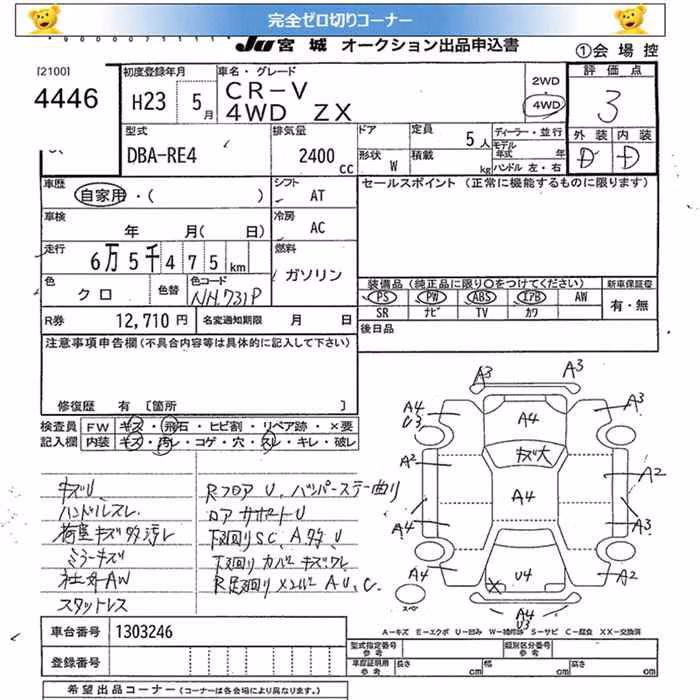 完全ゼロ切りコーナー
JU宮城 オークション出品申込書
①会場控
[2100]
4446
初度登録年月
H23 5月
車名・グレード
CR-V
4WD ZX
2WD
4WD
評価点
3
外装 内装
D D
型式
DBA-RE4
排気量
2400 cc
ドア
形状 W
定員 5人
積載 kg
ディーラー・並行
モデル年式 年
ハンドル 左・右
車歴
自家用・( )
シフト
AT
セールスポイント (正常に機能するものに限ります)
車検
年 月( 日)
冷房
AC
走行
6万5千475km
燃料
ガソリン
色
クロ
色替
色コード
NH731P
装備品 (純正品に限り〇をつけてください)
新車保証書
PS PW ABS エアB AW
有・無
SR ナビ TV カワ
R券 12,710円
名変通知期限 月 日
後日品
注意事項申告欄 (不具合内容等は具体的に記入して下さい)
修復歴 有 [箇所 ]
検査員記入欄
FW キズ・飛石・ヒビ割・リペア跡・×要
内装 キズ・汚レ・コゲ・穴・スレ・キレ・破レ
キズU
ハンドルスレ
荷室キズ多汚レ
ミラーキズ
社外AW
スタットレス
Rフロア U、バンパーステー曲り
コアサポートU
下回りSC、A多、U
下回りカバーキズワレ
A3 A3
A4 A4 A3
U3
キズ大
A2 A4 A2
A4 A3
A4 X U4 A2
スペア
A4
U3
A-キズ E-エクボ U-凹み W-補修跡 S-サビ C-腐食 XX-交換済
車台番号 1303246
型式指定番号 参考
類別区分番号 参考
登録番号
車庫証明用 参考
長さ cm
幅 cm
高さ cm
希望出品コーナー (コーナーは各会場により異なります。)